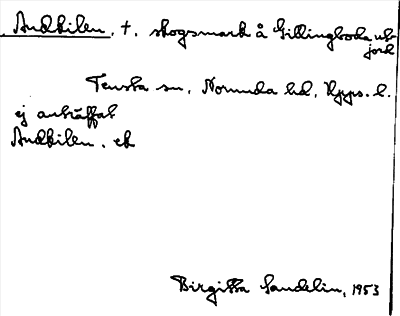 Andkilen, †. skogsmark å Gillingboda ut-
jord
Tensta sn, Norunda hd, Upps. l.
ej anträffat
Andkilen. ek
Birgitta Sandelin, 1953